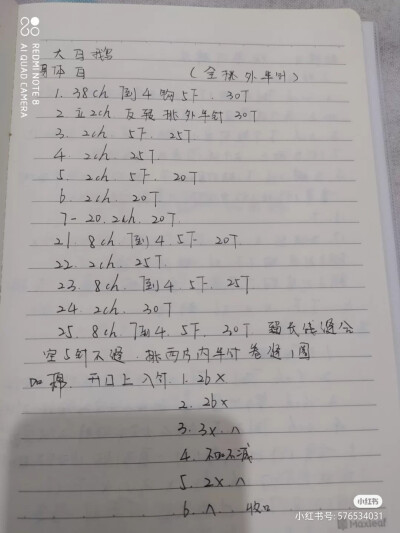 REDMI NOTE 8
AI QUAD CAMERA
大白鹅
身体白 (全挑外半针)
1. 38ch 倒4钩5F. 30T
2 立2ch 反转挑外半针 30T
3. 2ch 5F. 25T
4. 2ch. 25T
5. 2ch. 5F. 20T
6. 2ch. 20T
7-20. 2ch. 20T
21. 8ch 倒4. 5F. 20T
22. 2ch. 25T
23. 8ch. 倒4 5F. 25T
24. 2ch. 30T
25. 8ch. 倒4. 5F. 30T 留长线缝合
空5针不缝. 挑两片内半针卷缝1圆
加棉. 开口上入针. 1. 26x
2. 26x
3. 3x. ∧
4. 不加不减
5. 2x ∧
6. ∧ 收口
小红书
小红书号: 576534031
Maxleaf